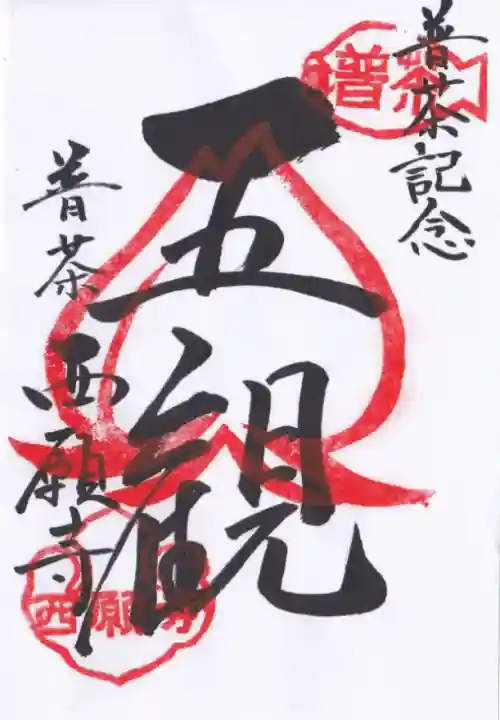 普茶記念
普茶
五観
普茶
西願寺
西願寺